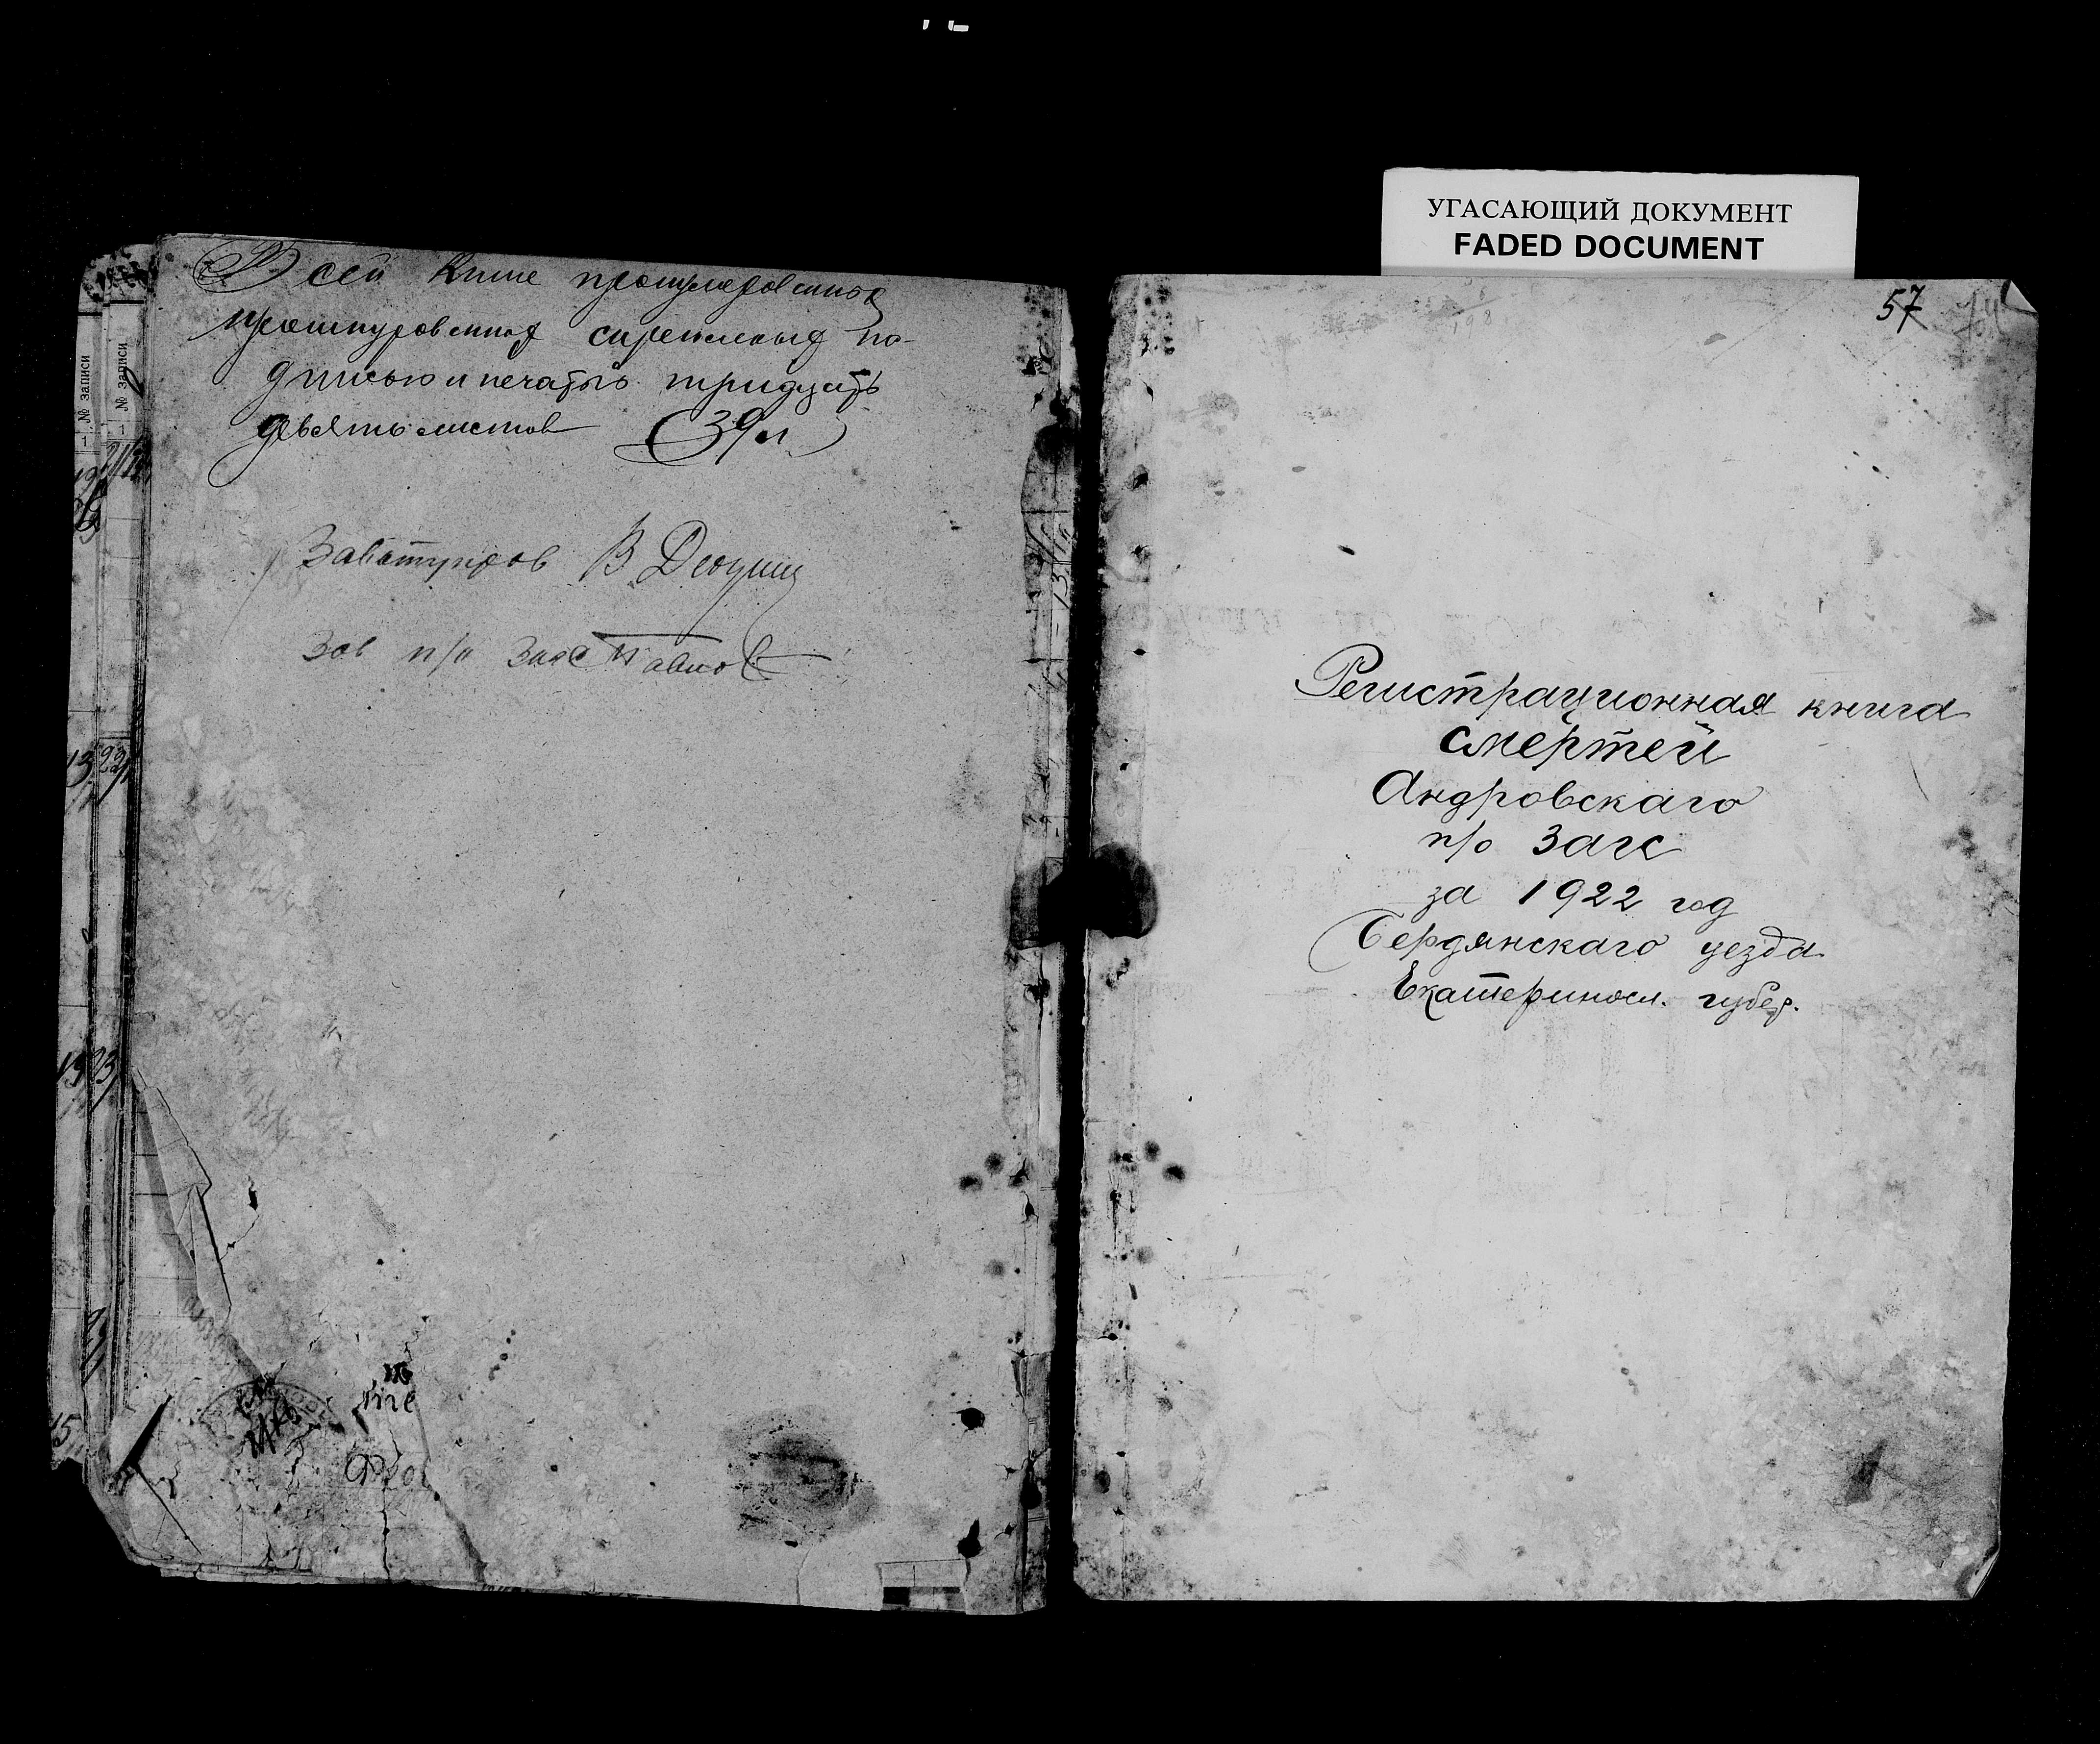 В сей книге пронумерованных
прошнурованных скрепленных по-
дписью и печатью тридцать
девять листов (39 л)
В
Зав п/о Загс Павлов
№ записи
№ записи
1
1
УГАСАЮЩИЙ ДОКУМЕНТ
FADED DOCUMENT
57
Регистрационная книга
смертей
Андровскаго
п/о Загс
за 1922 год
Бердянскаго уезда
Екатериносл. губер.